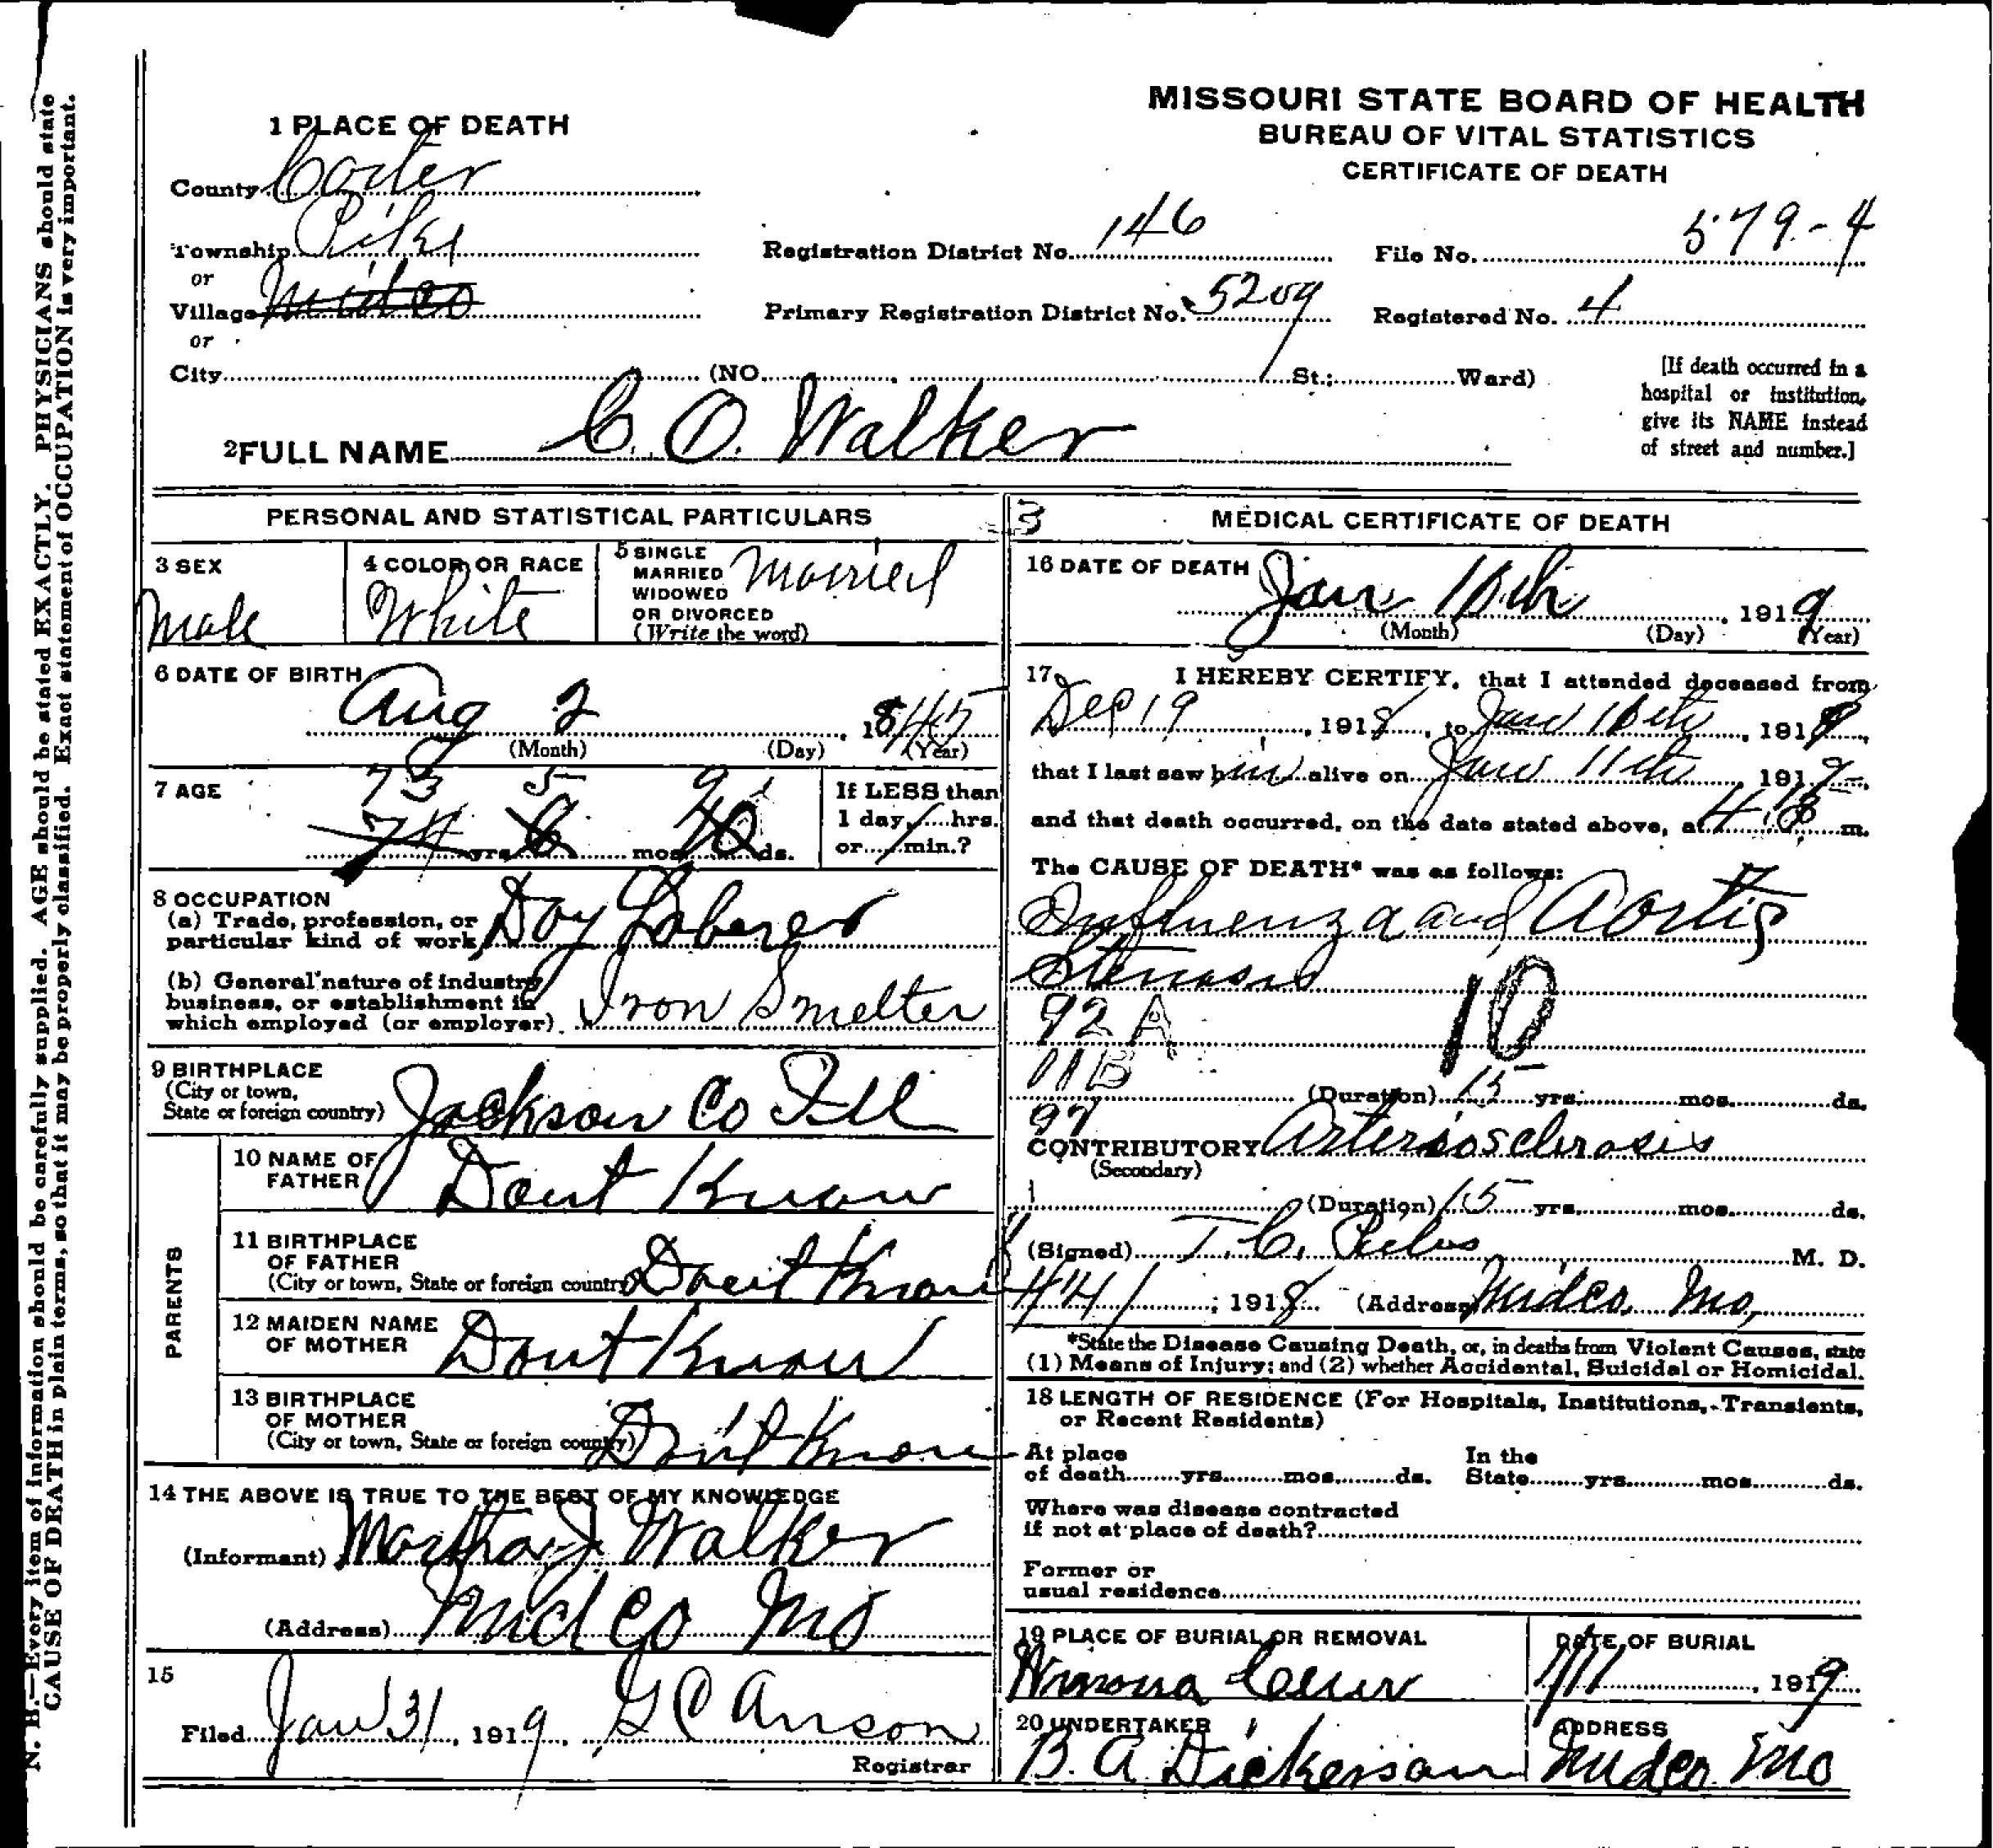 N. B.—Every item of information should be carefully supplied. AGE should be stated EXACTLY. PHYSICIANS should state
CAUSE OF DEATH in plain terms, so that it may be properly classified. Exact statement of OCCUPATION is very important.
MISSOURI STATE BOARD OF HEALTH
BUREAU OF VITAL STATISTICS
CERTIFICATE OF DEATH
1 PLACE OF DEATH
County Carter
Township Pike
or
Village Midco
or
City (NO. St.; Ward)
Registration District No. 146
File No. 579-4
Primary Registration District No. 5209
Registered No. 4
[If death occurred in a
hospital or institution,
give its NAME instead
of street and number.]
2 FULL NAME C. O. Walker
PERSONAL AND STATISTICAL PARTICULARS
3 SEX
Male
4 COLOR OR RACE
White
5 SINGLE
MARRIED
WIDOWED
OR DIVORCED
(Write the word)
Married
6 DATE OF BIRTH
Aug 2, 1845
(Month) (Day) (Year)
7 AGE
73 5 9
74 yrs. 6 mos. ds.
If LESS than
1 day, hrs.
or min.?
8 OCCUPATION
(a) Trade, profession, or
particular kind of work Day Laberer
(b) General nature of industry
business, or establishment in
which employed (or employer) Iron Smelter
9 BIRTHPLACE
(City or town,
State or foreign country) Jackson Co Ill
PARENTS
10 NAME OF
FATHER Dont Know
11 BIRTHPLACE
OF FATHER
(City or town, State or foreign country) Dont Know
12 MAIDEN NAME
OF MOTHER Dont Know
13 BIRTHPLACE
OF MOTHER
(City or town, State or foreign country) Dont Know
14 THE ABOVE IS TRUE TO THE BEST OF MY KNOWLEDGE
(Informant) Martha J Walker
(Address) Midco Mo
15
Filed Jan 31, 1919, G C Anson
Registrar
3
MEDICAL CERTIFICATE OF DEATH
16 DATE OF DEATH
Jan , 1919
(Month) (Day) (Year)
17 I HEREBY CERTIFY, that I attended deceased from
Dec 19, 1918, to Jan , 1919,
that I last saw him alive on Jan 11th, 1919,
and that death occurred, on the date stated above, at m.
The CAUSE OF DEATH* was as follows:
Influenza and Aortic
Stenosis
92 A
10
11B
(Duration) 15 yrs. mos. ds.
97
CONTRIBUTORY Arteriosclerosis
(Secondary)
(Duration) 15 yrs. mos. ds.
(Signed) T. C. M. D.
, 1918 (Address) Midco, Mo,
*State the Disease Causing Death, or, in deaths from Violent Causes, state
(1) Means of Injury; and (2) whether Accidental, Suicidal or Homicidal.
18 LENGTH OF RESIDENCE (For Hospitals, Institutions, Transients,
or Recent Residents)
At place
of death yrs. mos. ds.
In the
State yrs. mos. ds.
Where was disease contracted
if not at place of death?
Former or
usual residence
19 PLACE OF BURIAL OR REMOVAL
Winona Cem
DATE OF BURIAL
, 1919
20 UNDERTAKER
B. A. Dickerson
ADDRESS
Midco Mo